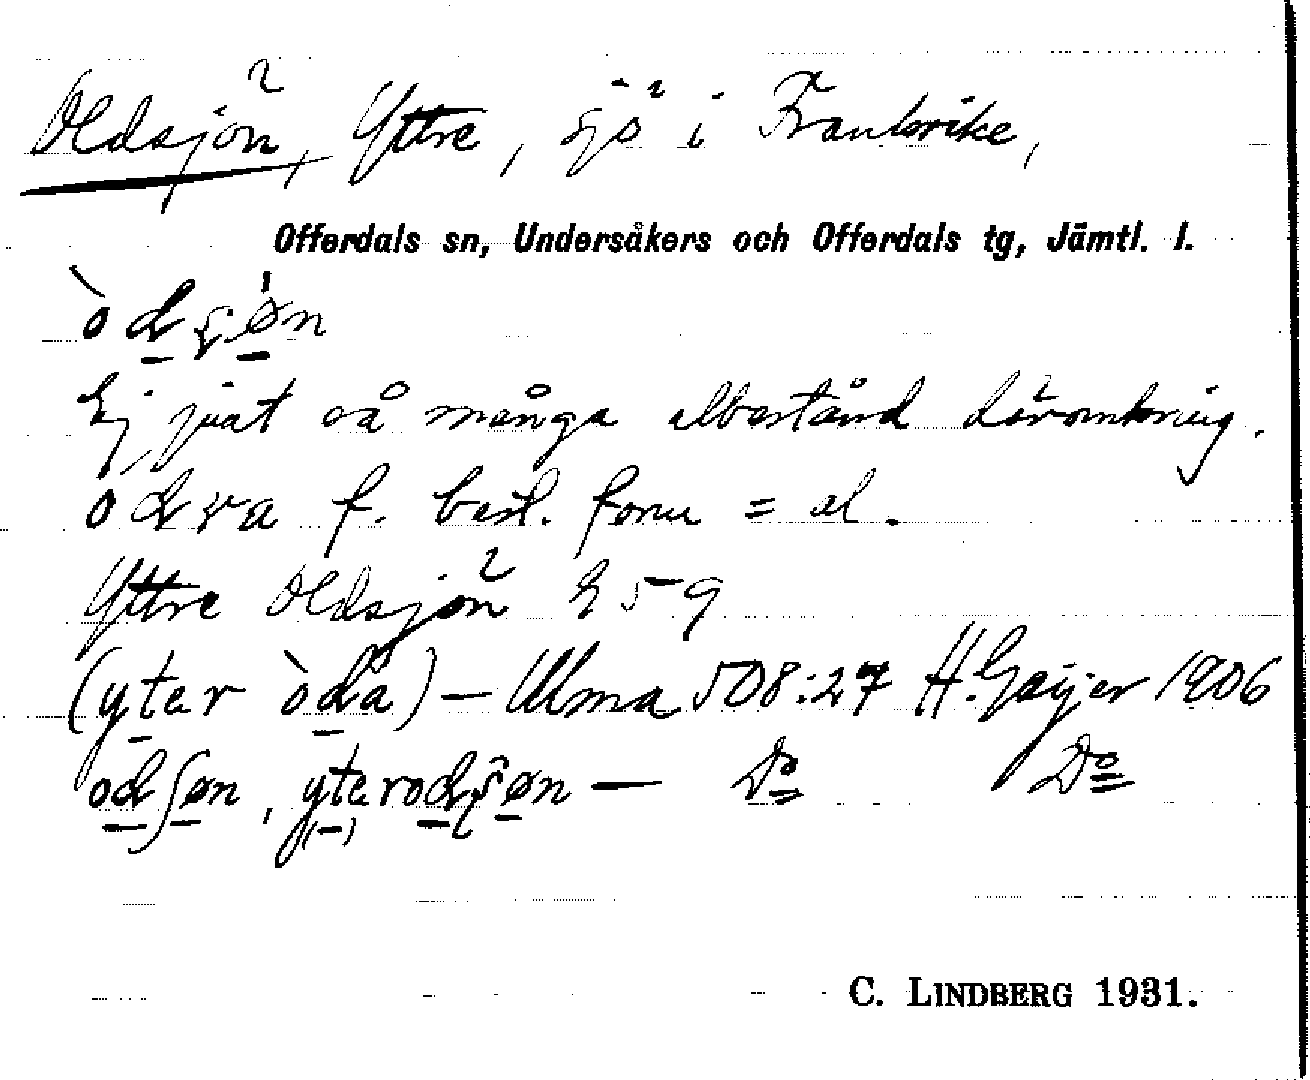 Oldsjön, Yttre, sjö i Frankrike,
Offerdals sn, Undersåkers och Offerdals tg, Jämtl. l.
òdʂøn
Ej just så många albestånd däromkring.
odra f. best. form = al.
Yttre Oldsjön E 59
(yter òda) — Ulma 508:27 H. Geijer 1906
odʃøn, yterodʂøn — Do Do
C. LINDBERG 1931.